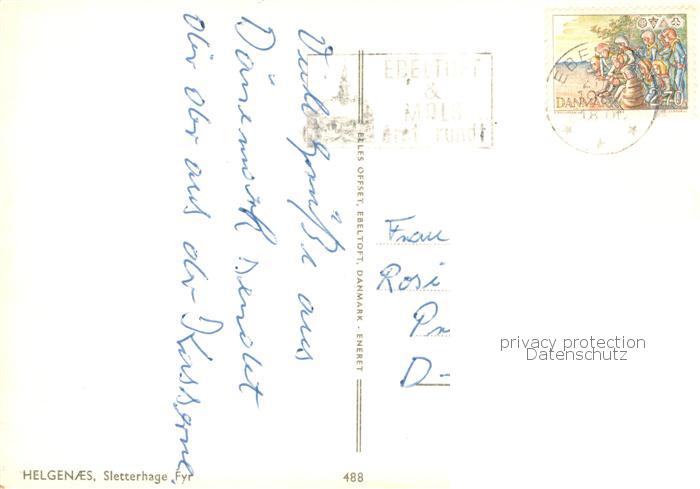 Viele Grüße aus
Dänemark sendet
der aus der Kaserne
EBELTOFT
&
MOLS
året rundt
DANMARK 2.70
ELLES OFFSET, EBELTOFT, DANMARK - ENERET
Frau
Rosi
D-
privacy protection
Datenschutz
HELGENÆS, Sletterhage Fyr
488